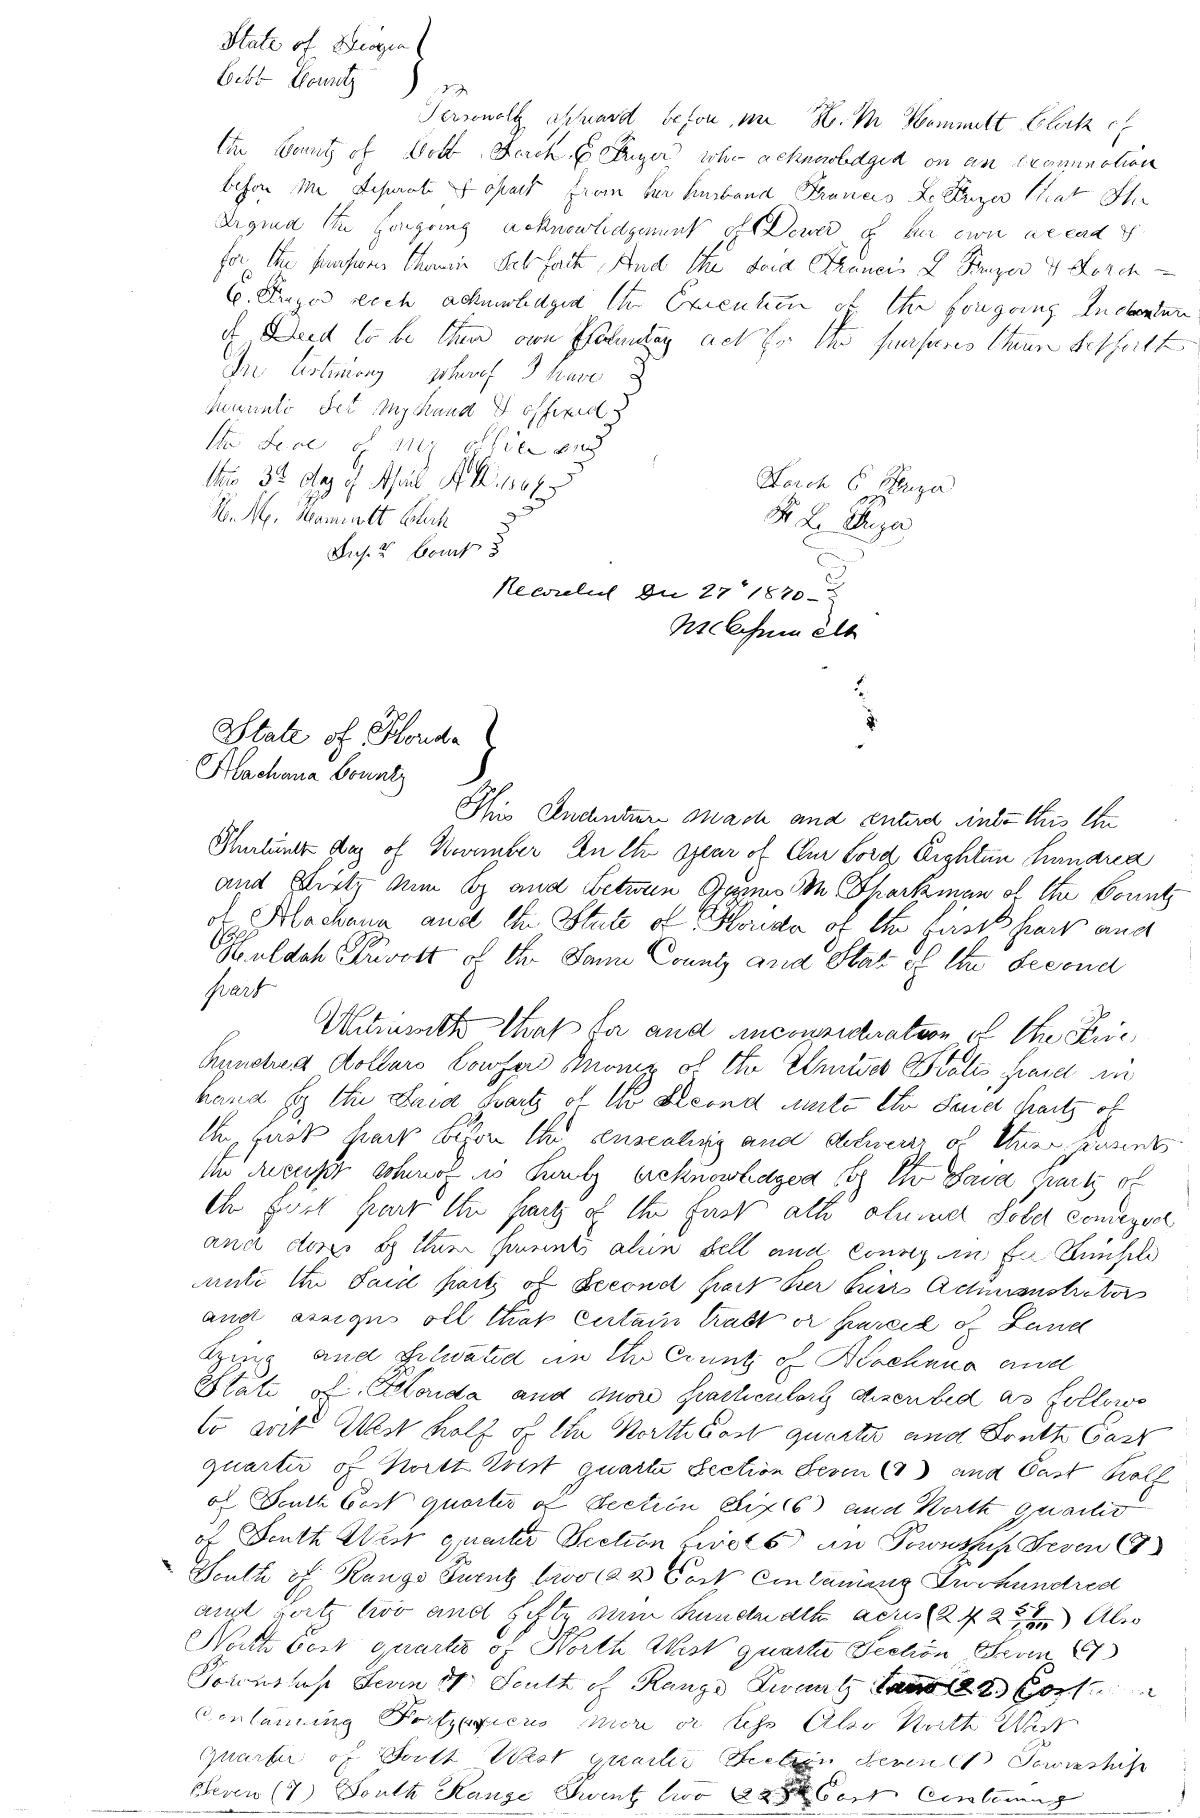 State of Georgia
Cobb County
Personally appeard before me H. M Hammett Clerk of
the County of Cobb Sarah E Fryer who acknowledged on an examination
before me Seperate & apart from her husband Francis L. Fryer that She
Signed the foregoing acknowledgement of Dower of her own accord &
for the purposes therein Set forth And the said Francis L Fryer & Sarah
E. Fryer each acknowledged the Execution of the foregoing Indenture
of Deed to be their own Voluntary act for the purposes therein Set forth
In testimony whereof I have
hereunto Set my hand & affixed
the Seal of my office
this 3d day of April A.D.
H. M. Hammett Clerk
Supr Court
Sarah E Fryer
F L. Fryer
Recorded Dec 27" 1870
Clk
State of Florida
Alachua County
This Indenture made and enterd into this the
Thirtinth day of November In the year of Our Lord Eighteen hundred
and Sixty nine by and between James M Sparkman of the County
of Alachua and the State of Florida of the first part and
Huldah Privott of the Same County and State of the Second
part
Witnesseth that for and inconsideration of the Five
hundred dollars Lawful money of the United States paid in
hand by the Said party of the Second unto the Said party of
the first part before the ensealing and delivery of these presents
the receipt whereof is hereby acknowledged by the Said party of
the first part the party of the first ath aliend Sold conveyed
and doxes by these presents alien Sell and convey in fee Simple
unto the Said party of Second part her heirs Administrators
and assigns all that certain tract or parcel of Land
Lying and Situated in the County of Alachua and
State of Florida and more particularly described as follows
to wit West half of the North East quarter and South East
quarter of North West quarter Section Seven (7) and East half
of South East quarter of Section Six (6) and North quarter
of South West quarter Section five (5) in Township Seven (7)
South of Range Twenty two (22) East Containing Two hundred
and forty two and fifty nine hundredth acres (242 59/100) Also
North East quarter of North West quarter Section Seven (7)
Township Seven 7 South of Range Twenty two (22) East
containing Forty acres more or less Also North West
quarter of South West quarter Section Seven (7) Township
Seven (7) South Range Twenty two (22) East Containing